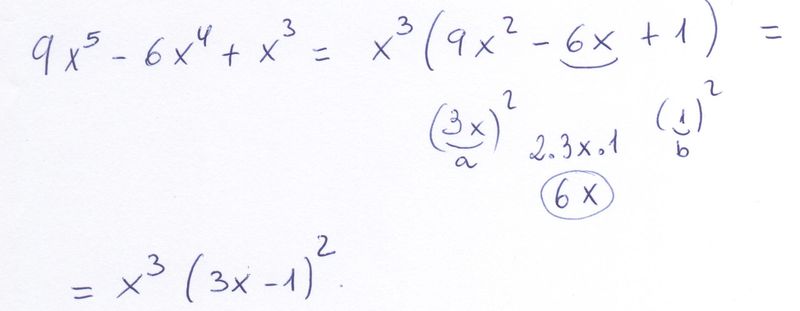 9x⁵ - 6x⁴ + x³ = x³(9x² - 6x + 1) =
(3x)² 2.3x.1 (1)²
a b
6x
= x³(3x-1)².